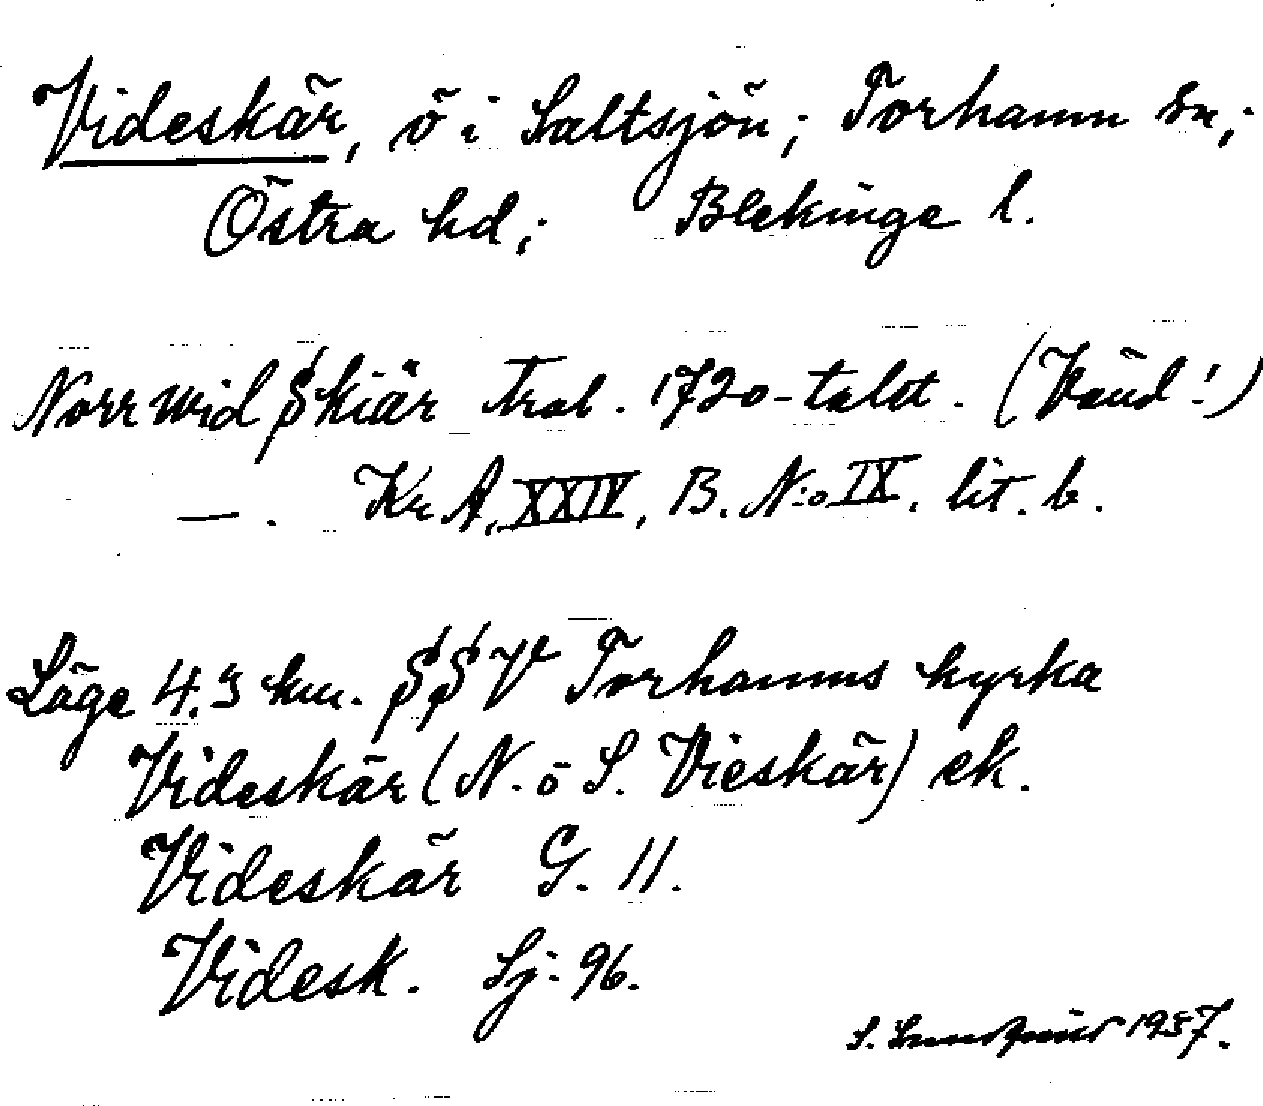 Videskär, ö i Saltsjön; Torhamn sn;
Östra hd; Blekinge l.
Norr wid Skiär trol. 1720-talet. (Vänd!)
—. Kr A, XXIV, B. N:o IX. lit. b.
Läge 4.3 km. SSV Torhamns kyrka
Videskär (N. o S. Vieskär) ek.
Videskär G. 11.
Videsk. Sj: 96.
S. 1937.